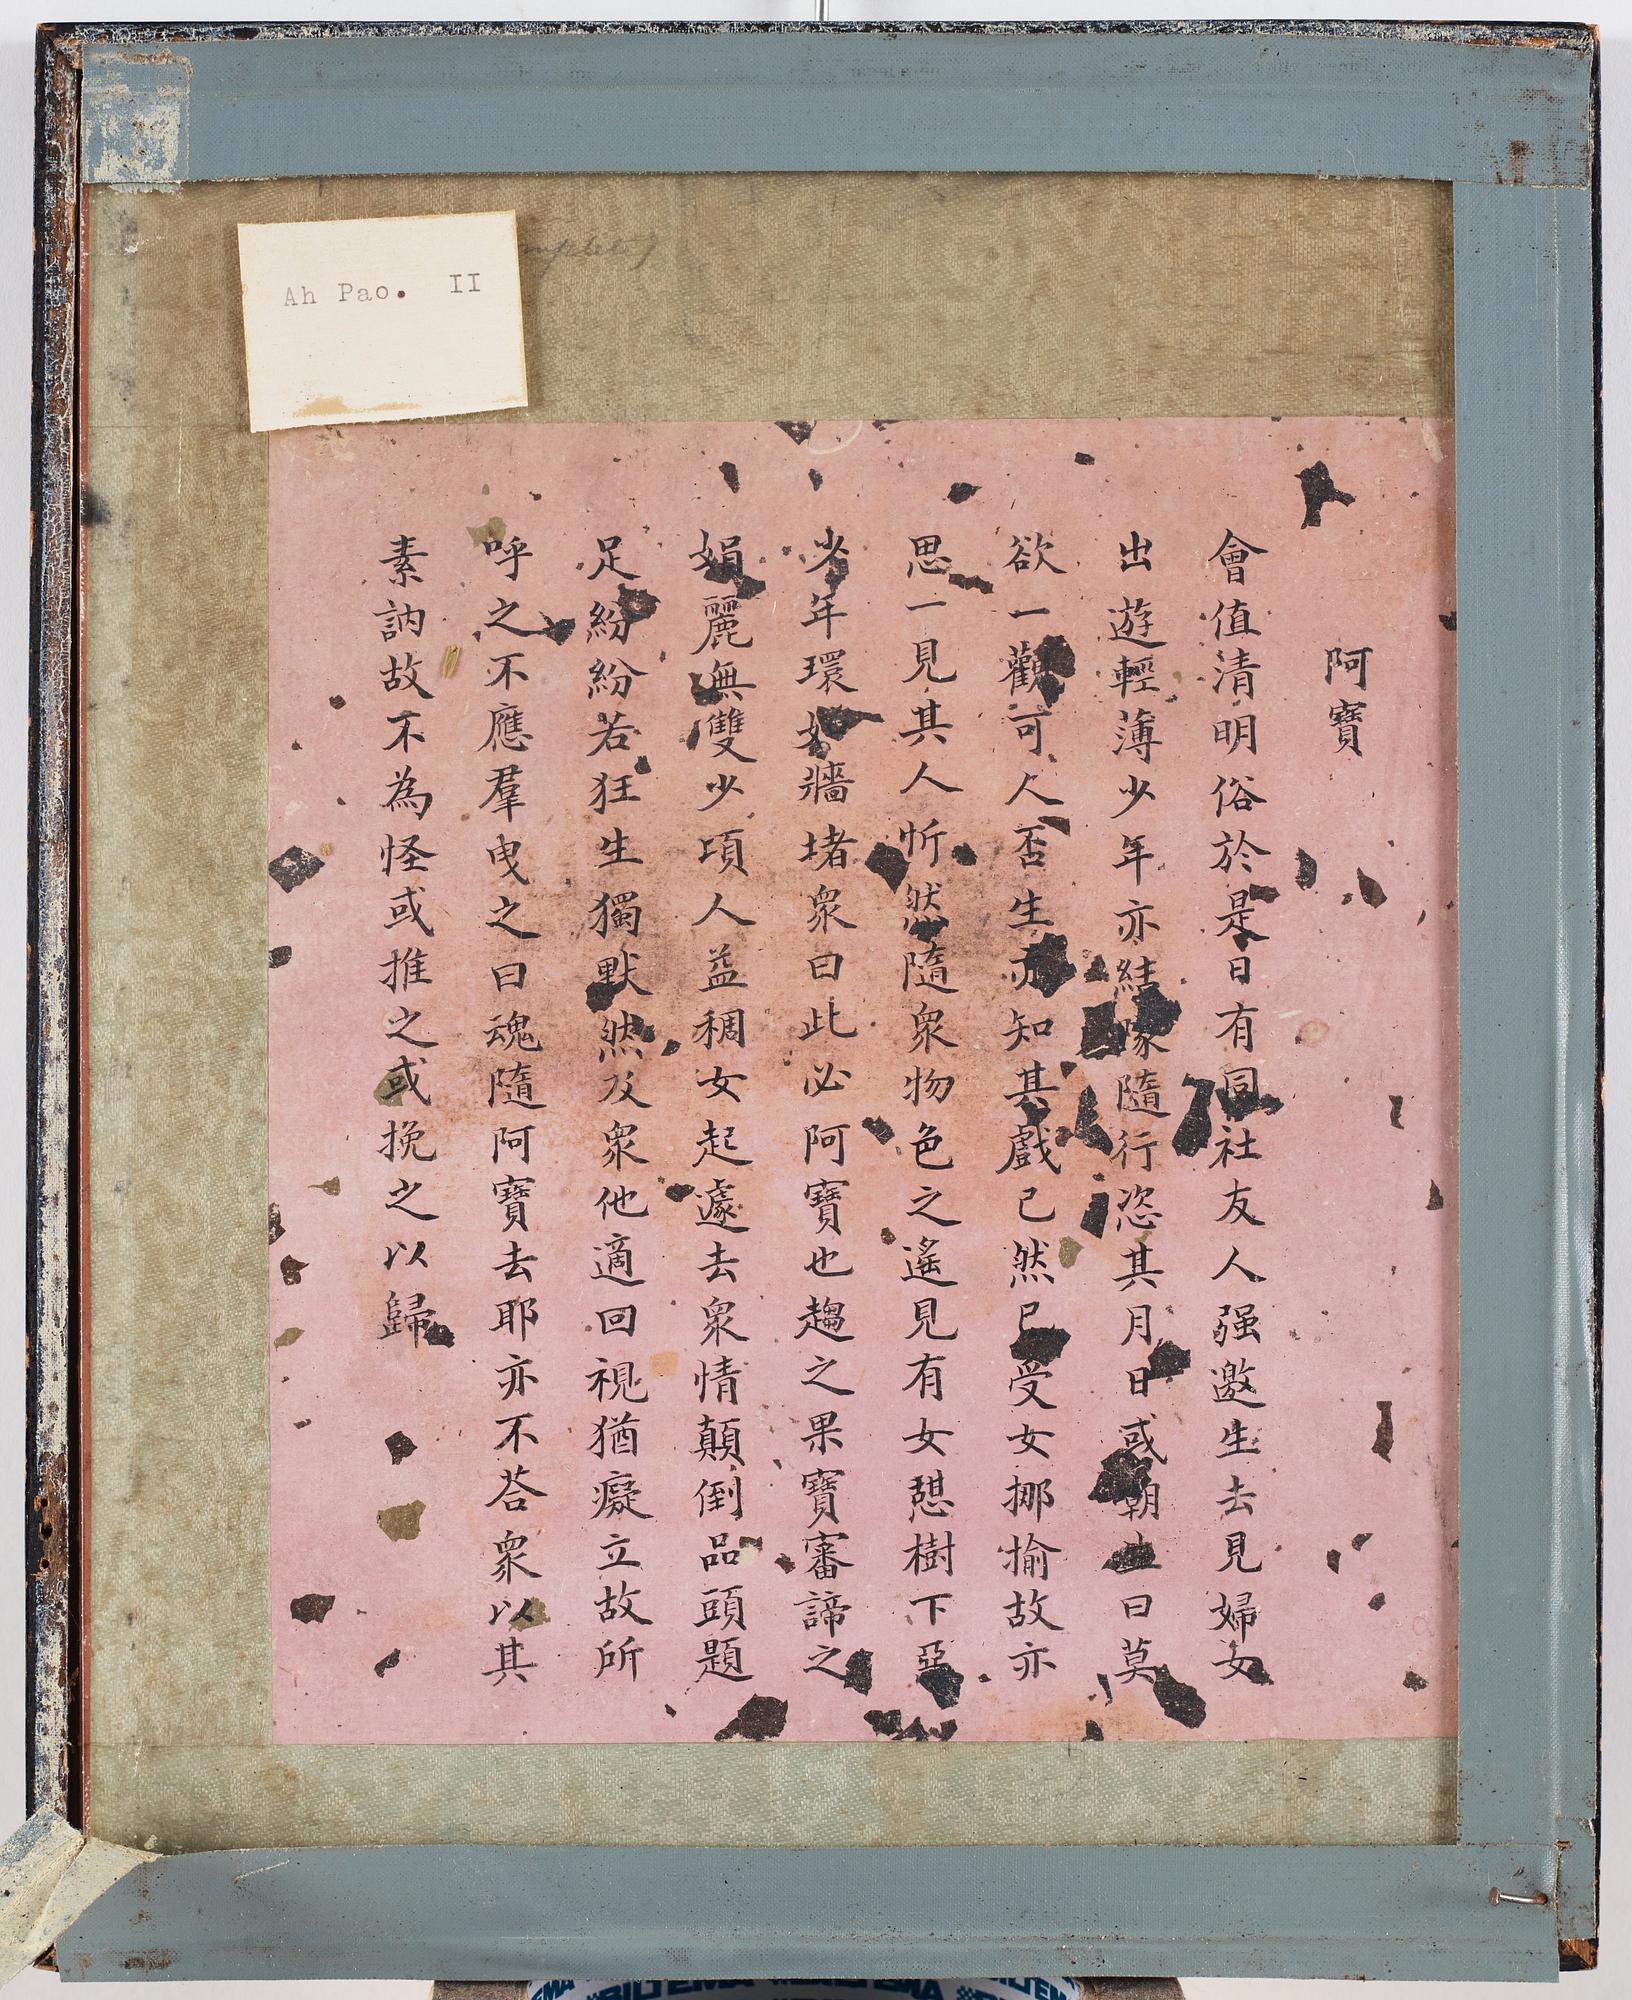 Ah Pao. II
阿寶
會值清明俗於是日有同社友人强邀生去見婦女
出遊輕薄少年亦結隊隨行恣其月旦或朝生曰莫
欲一觀可人否生亦知其戲已然已受女揶揄故亦
思一見其人忻然隨衆物色之遙見有女憩樹下惡
少年環如牆堵衆曰此必阿寶也趨之果寶審諦之
娟麗無雙少項人益稠女起遽去衆情顛倒品頭題
足紛紛若狂生獨默然及衆他適回視猶癡立故所
呼之不應羣曳之曰魂隨阿寶去耶亦不荅衆以其
素訥故不為怪或推之或挽之以歸
BILTEMA